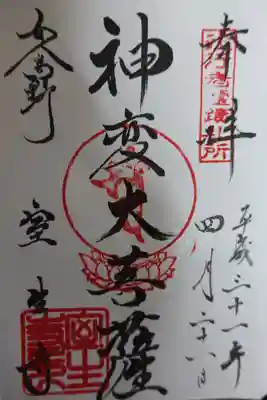 奉拝
平成三十一年
四月二十八日
神変大菩薩
女人高野
室生寺